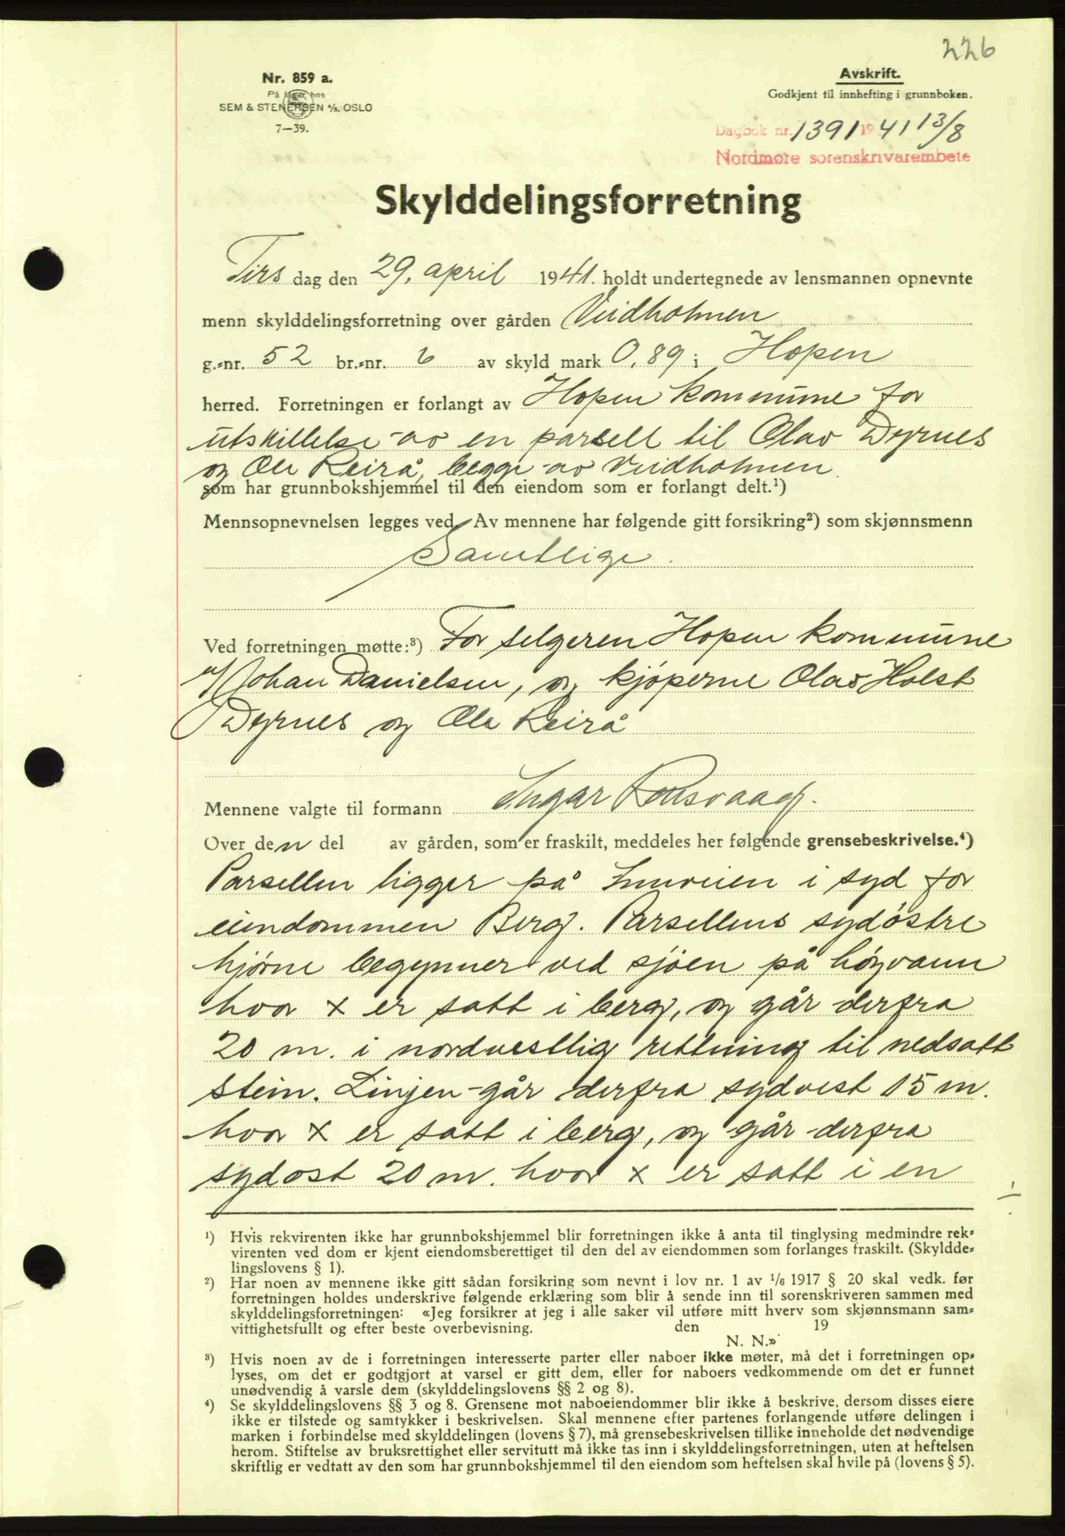 226
Nr. 859 a.
På lager hos
SEM & STENERSEN A/S, OSLO
7—39.
Avskrift.
Godkjent til innhefting i grunnboken.
Dagbok nr. 1391 1941 13/8
Nordmøre sorenskrivarembete
Skylddelingsforretning
Tirsdag den 29. april 1941. holdt undertegnede av lensmannen opnevnte
menn skylddelingsforretning over gården Veidholmen
g.-nr. 52 br.-nr. 6 av skyld mark 0,89 i Hopen
herred. Forretningen er forlangt av Hopen kommune for
utskillelse av en parsell til Olav Dyrnes
og Ole Reirå, begge av Veidholmen.
som har grunnbokshjemmel til den eiendom som er forlangt delt.¹)
Mennsopnevnelsen legges ved. Av mennene har følgende gitt forsikring²) som skjønnsmenn
Samtlige.
Ved forretningen møtte:³) For selgeren Hopen kommune
v/ Johan Danielsen, og kjøperne Olav Holst
Dyrnes og Ole Reirå
Mennene valgte til formann Ingar Rosvaag.
Over den del av gården, som er fraskilt, meddeles her følgende grensebeskrivelse.⁴)
Parsellen ligger på i syd for
eiendommen Berg. Parsellens sydøstre
hjørne begynner ved sjøen på høgvann
hvor x er satt i berg, og går derfra
20 m. i nordvestlig rettning til nedsatt
stein. Linjen går derfra sydvest 15 m.
hvor x er satt i berg, og går derfra
sydøst 20 m. hvor x er satt i en
¹) Hvis rekvirenten ikke har grunnbokshjemmel blir forretningen ikke å anta til tinglysing medmindre rek-
virenten ved dom er kjent eiendomsberettiget til den del av eiendommen som forlanges fraskilt. (Skyldde-
lingslovens § 1).
²) Har noen av mennene ikke gitt sådan forsikring som nevnt i lov nr. 1 av 1/6 1917 § 20 skal vedk. før
forretningen holdes underskrive følgende erklæring som blir å sende inn til sorenskriveren sammen med
skylddelingsforretningen: «Jeg forsikrer at jeg i alle saker vil utføre mitt hverv som skjønnsmann sam-
vittighetsfullt og efter beste overbevisning. den 19
N. N.»
³) Hvis noen av de i forretningen interesserte parter eller naboer ikke møter, må det i forretningen op-
lyses, om det er godtgjort at varsel er gitt dem, eller for naboers vedkommende om det er funnet
unødvendig å varsle dem (skylddelingslovens §§ 2 og 8).
⁴) Se skylddelingslovens §§ 3 og 8. Grensene mot naboeiendommer blir ikke å beskrive, dersom disses eiere
ikke er tilstede og samtykker i beskrivelsen. Skal mennene efter partenes forlangende utføre delingen i
marken i forbindelse med skylddelingen (lovens § 7), må grensebeskrivelsen tillike inneholde det nødvendige
herom. Stiftelse av bruksrettighet eller servitutt må ikke tas inn i skylddelingsforretningen, uten at heftelsen
skriftlig er vedtatt av den som har grunnbokshjemmel til den eiendom som heftelsen skal hvile på (lovens § 5).